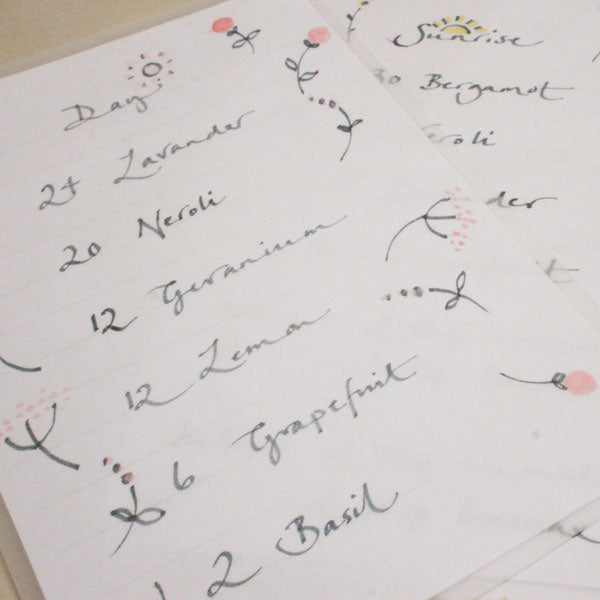 Day
24 Lavander
20 Neroli
12 Geranium
12 Lemon
6 Grapefruit
2 Basil
Sunrise
30 Bergamot